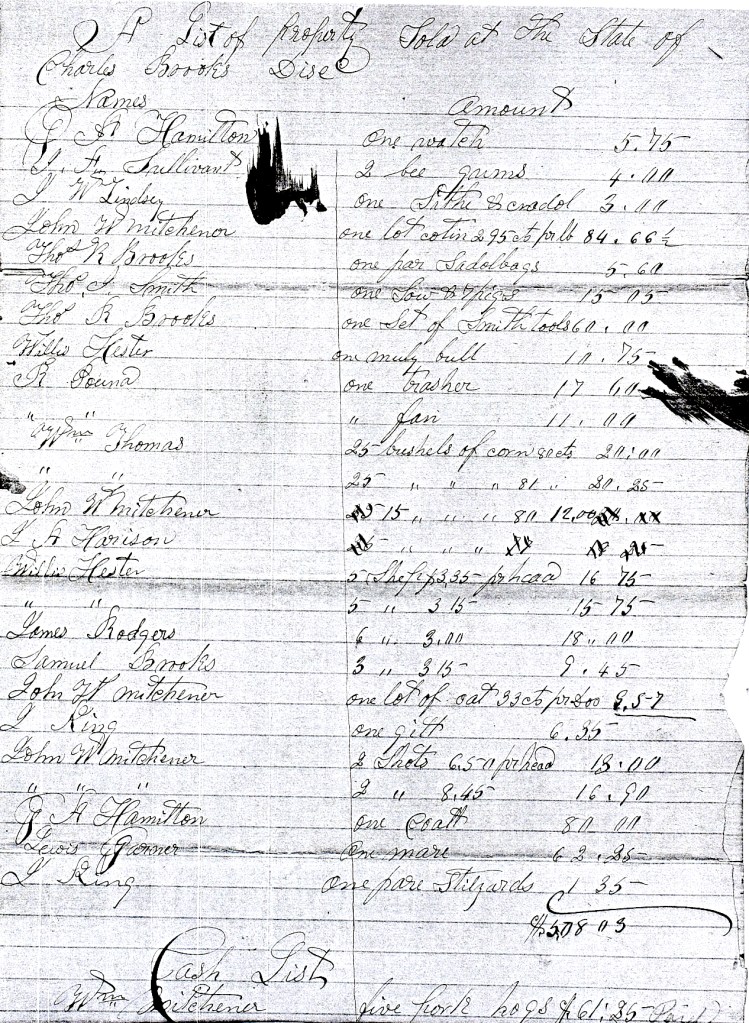 A List of Property Sold at The State of
Charles Brooks Dise
Names Amount
J A Hamilton one watch 5.75
J. A. Sullivant 2 bee gums 4.00
J W Lindsey one Sithe & cradol 3.00
John W Mitchener one lot cotin 295 cts pr lb 84.66½
Thos R Brooks one par Sadolbags 5.60
Tho. S. Smith one Sow & 7 pigs 15 05
Tho. R Brooks one Set of Smith tools 60.00
Willis Hester one muly bull 10.75
R Pound one trasher 17 60
" " " fan 11.00
Wm Thomas 25 bushels of corn 80cts 20.00
" " 25 " " " 81 " 20.25
John W Mitchener 15 " " " 80 12.00
J A Harison " " "
Willis Hester 5 Shefip 3.35 pr head 16 75
" " 5 " 3 15 15 75
James Rodgers 6 " 3.00 18.00
Samuel Brooks 3 " 3 15 9.45
John W Mitchener one lot of oat 33cts pr Doo 9.57
J King one gilt 6.35
John W Mitchener 2 Shots 6.50 pr head 13.00
" " " 2 " 8.45 16.90
J A Hamilton one Coalt 80 00
Lewis Garner One mare 62.25
J King one pare Stilzards 1 35
$508 03
Cash List
Wm Mitchener five pork hogs $61.25 Paid